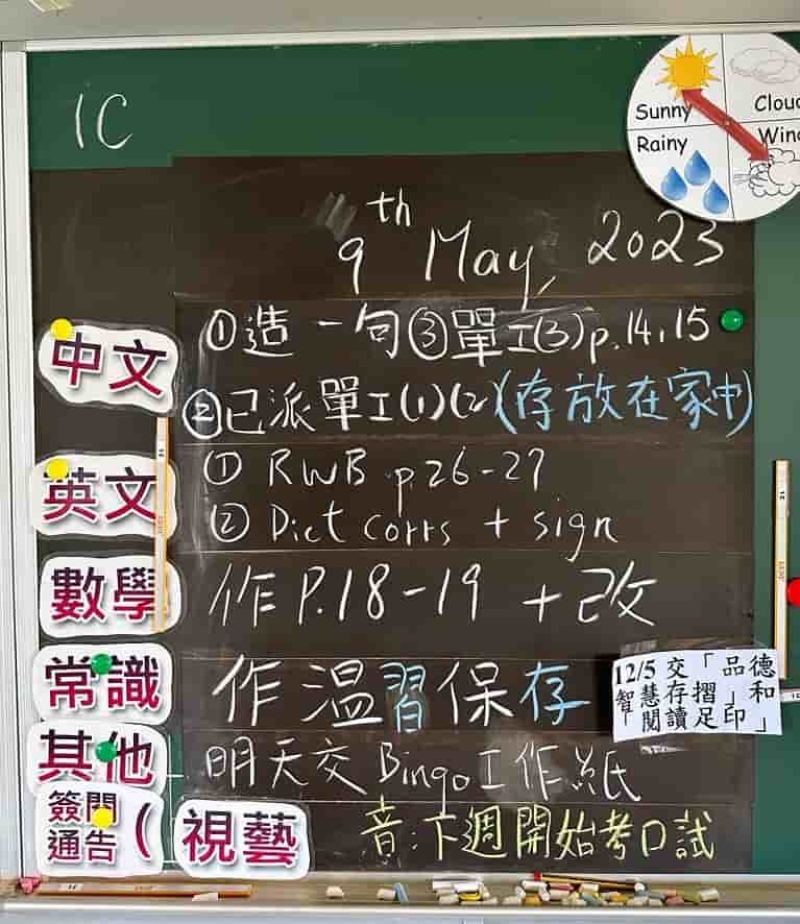 1C
Sunny
Rainy
9th May, 2023
中文
①造一句③單工(3)p.14,15
②已派單工(1)(2)(存放在家中)
英文
① RWB p.26-27
② Dict corrs + sign
數學
作P.18-19 + 改
常識
作溫習保存
12/5 交「品德
智慧存摺」和
「閱讀足印」
其他
明天交Bingo工作紙
通告 (
視藝
音:下週開始考口試